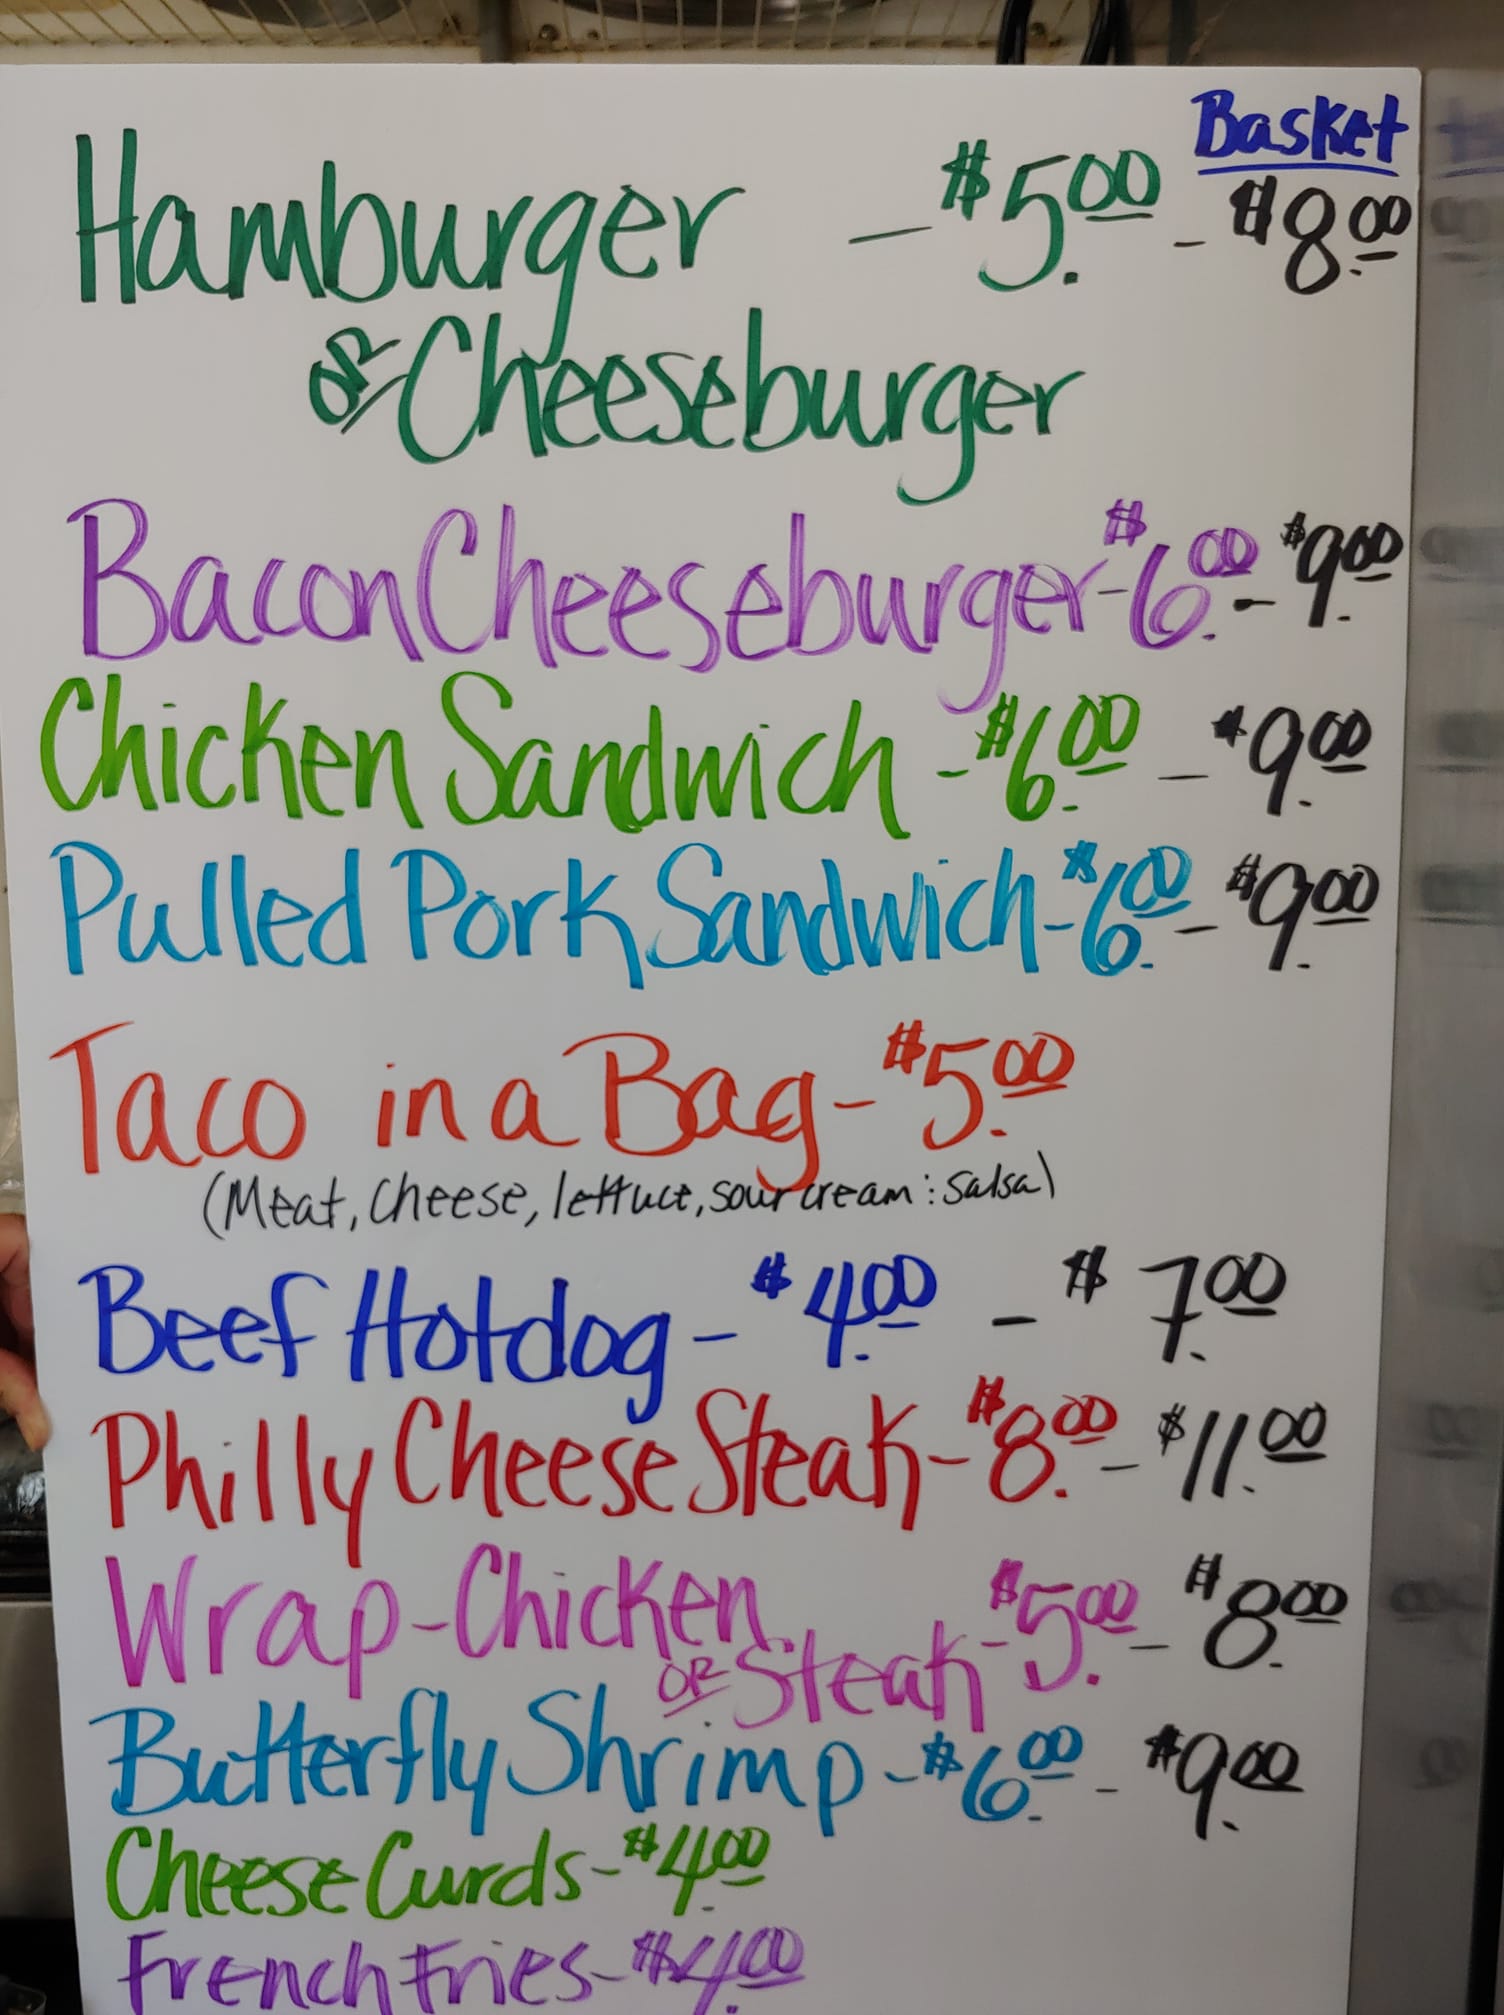 Basket
Hamburger - $5.00 - $8.00
OR Cheeseburger
Bacon Cheeseburger - $6.00 - $9.00
Chicken Sandwich - $6.00 - $9.00
Pulled Pork Sandwich - $6.00 - $9.00
Taco in a Bag - $5.00
(Meat, Cheese, lettuce, sour cream : salsa)
Beef Hotdog - $4.00 - $7.00
Philly Cheese Steak - $8.00 - $11.00
Wrap - Chicken
OR Steak - $5.00 - $8.00
Butterfly Shrimp - $6.00 - $9.00
Cheese Curds - $4.00
French Fries - $4.00